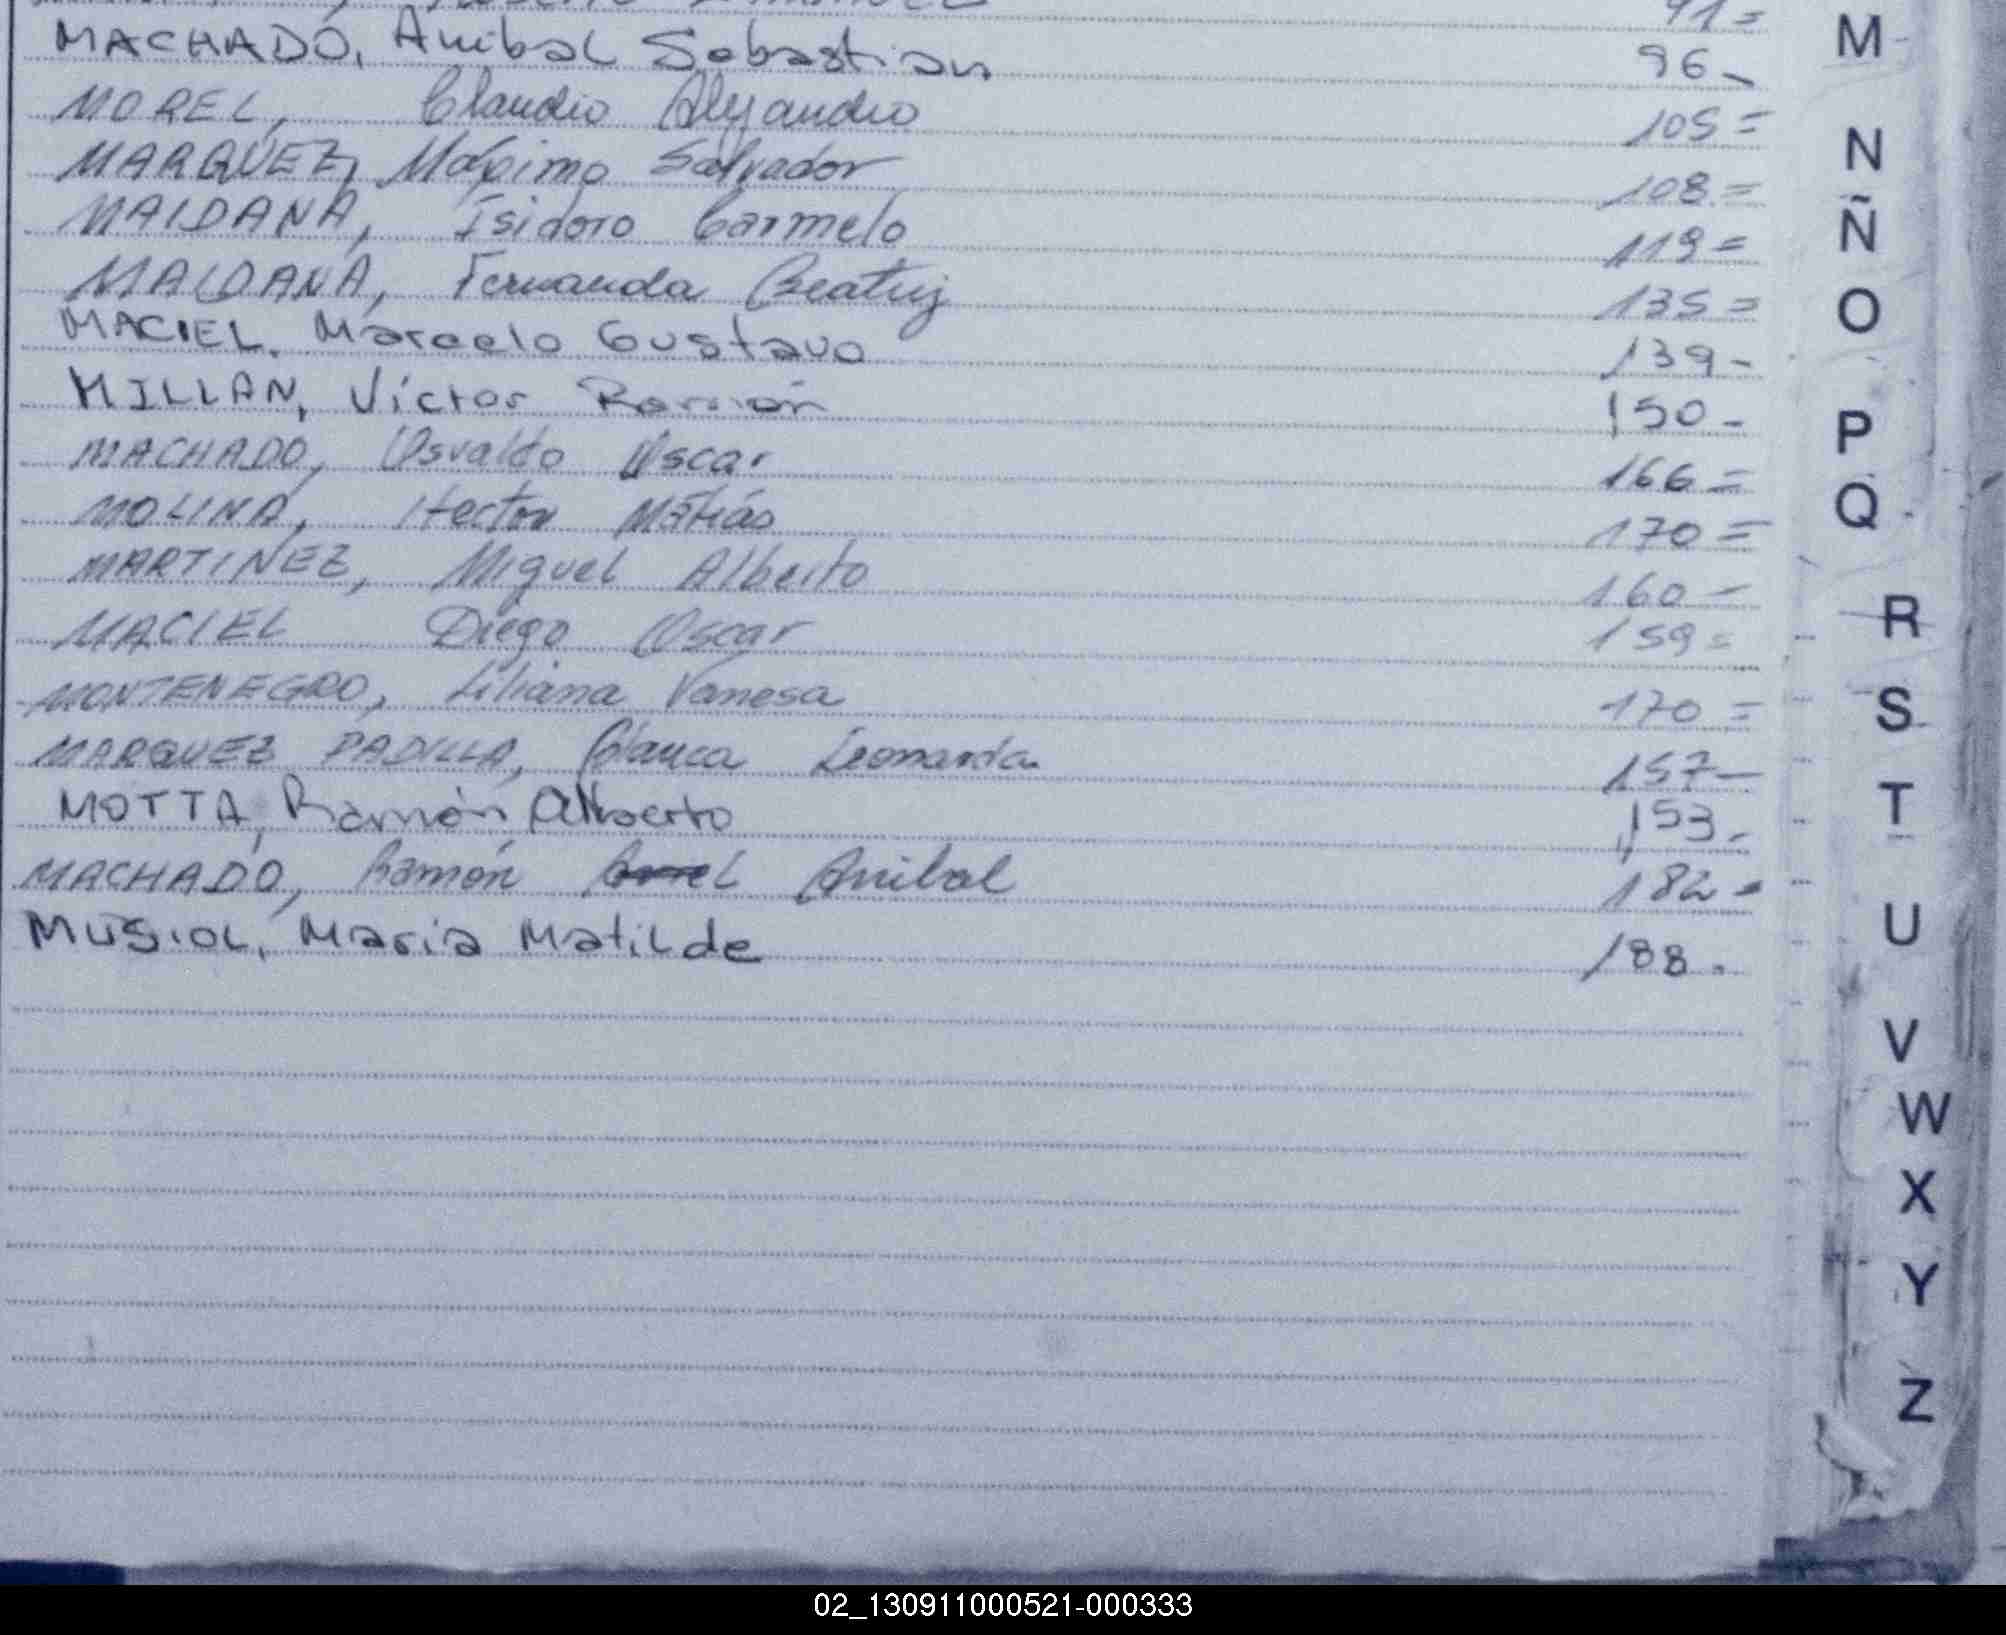 91=
MACHADO, Anibal Sebastian 96-
MOREL, Claudio Alejandro 105=
MARQUEZ, Máximo Salvador 108=
MAIDANA, Isidoro Carmelo 119=
MAIDANA, Fernanda Beatriz 135=
MACIEL, Marcelo Gustavo 139-
MILLAN, Víctor Ramón 150-
MACHADO, Osvaldo Oscar 166=
MOLINA, Hector Matías 170=
MARTINEZ, Miguel Alberto 160-
MACIEL Diego Oscar 159=
MONTENEGRO, Liliana Vanesa 170=
MARQUEZ PADILLA, Blanca Leonarda 157-
MOTTA, Ramón Alberto 153.-
MACHADO, Ramón Anibal 182-
MUSIOL, Maria Matilde 188.
M
N
Ñ
O
P
Q
R
S
T
U
V
W
X
Y
Z
02_130911000521-000333